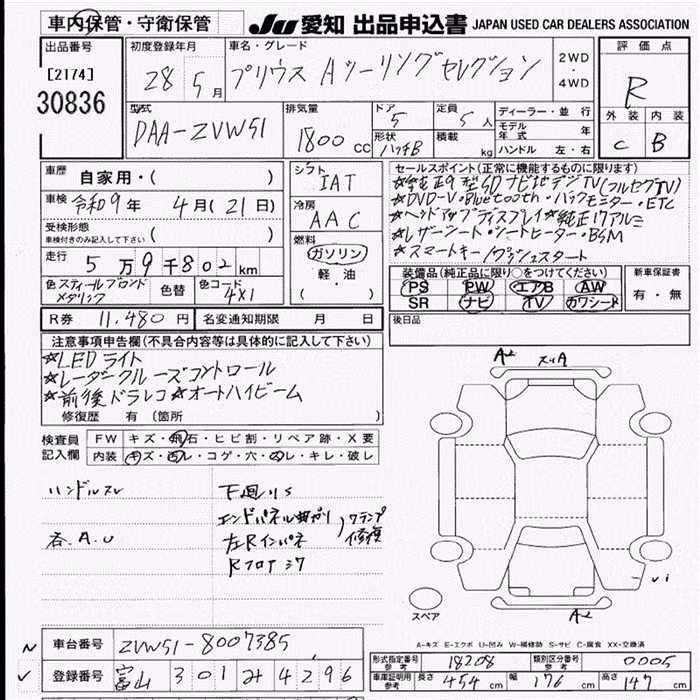 車内保管・守衛保管
JU 愛知 出品申込書 JAPAN USED CAR DEALERS ASSOCIATION
出品番号 初度登録年月 車名・グレード 2WD・4WD 評価点
[2174]
30836 28 5月 プリウス Aツーリングセレクション R
型式 排気量 ドア 定員 ディーラー・並行 外装 内装
DAA-ZVW51 1800cc 5 5人 モデル年式 年 C B
形状 ハッチB 積載 kg ハンドル 左・右
車歴 自家用・( ) シフト IAT
車検 令和9年 4月(21日) 冷房 AAC
受検形態 ( )
車検付きのみ記入して下さい
燃料 ガソリン 軽・油 ( )
走行 5万9千802km
色 スティールブロンドメタリック 色替 色コード 4X1
R券 11,480円 名変通知期限 月 日
セールスポイント(正常に機能するものに限ります)
☆純正9型SDナビ地デジTV(フルセグTV)
☆DVD-V・Bluetooth・バックモニター・ETC
☆ヘッドアップディスプレイ☆純正17アルミ
☆レザーシート・シートヒーター・BSM
☆スマートキー/プッシュスタート
装備品(純正品に限り○をつけてください) 新車保証書
PS PW エアB AW 有・無
SR ナビ TV カワシート
後日品
注意事項申告欄(不具合内容等は具体的に記入して下さい)
☆LEDライト
☆レーダークルーズコントロール
☆前後ドラレコ☆オートハイビーム
修復歴 有 〔箇所 〕
検査員記入欄 FW キズ・飛石・ヒビ割・リペア跡・X要
内装 キズ・汚レ・コゲ・穴・スレ・キレ・破レ
ハンドルスレ 下廻りS
エンドパネル曲がり
各.A.U 左Rインパネ クランプ修復
Rフロア
A2 スリA
スペア
A2
A-キズ E-エクボ U-凹み W-補修跡 S-サビ C-腐食 XX-交換済
車台番号 ZVW51-8007385
登録番号 富山 301 み 4296
形式指定番号 参考 18208 類別区分番号 参考 0005
車庫証明用 参考 長さ 454cm 幅 176cm 高さ 147cm